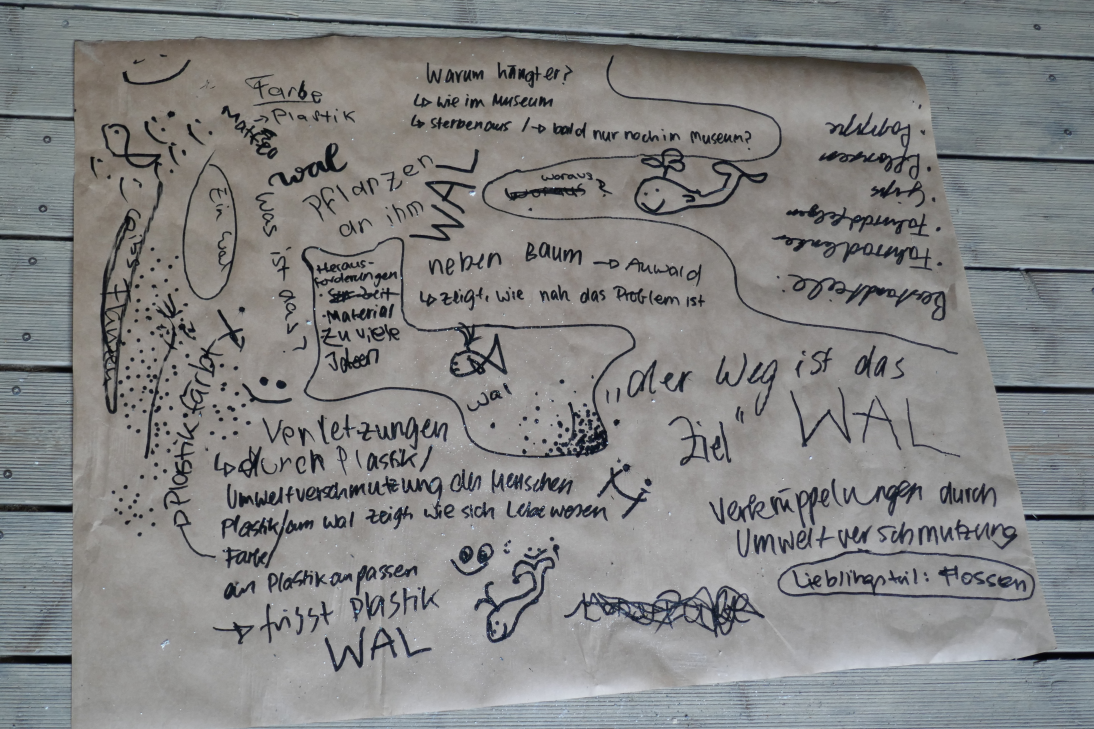 Farbe
↳ Plastik
Warum hängt er?
↳ wie im Museum
↳ sterben aus / → bald nur noch im Museum?
wal
Pflanzen
an ihm
WAL
woraus?
Ein Wal
Was ist das?
Heraus-
forderungen
· Material
zu viele
Ideen
neben Baum → Auwald
↳ zeigt, wie nah das Problem ist
wal
"der Weg ist das
Ziel"
WAL
Bestandteile:
· Fahrradlenker
· Fahrradfelgen
· Gips
· Pappe
Plastik färbt
Verletzungen
↳ durch Plastik/
Umweltverschmutzung der Menschen
Plastik/am wal zeigt wie sich Lebewesen
Farbe/
an Plastik anpassen
→ frisst plastik
WAL
Verkrüppelungen durch
Umweltverschmutzung
Lieblingsteil: Flossen